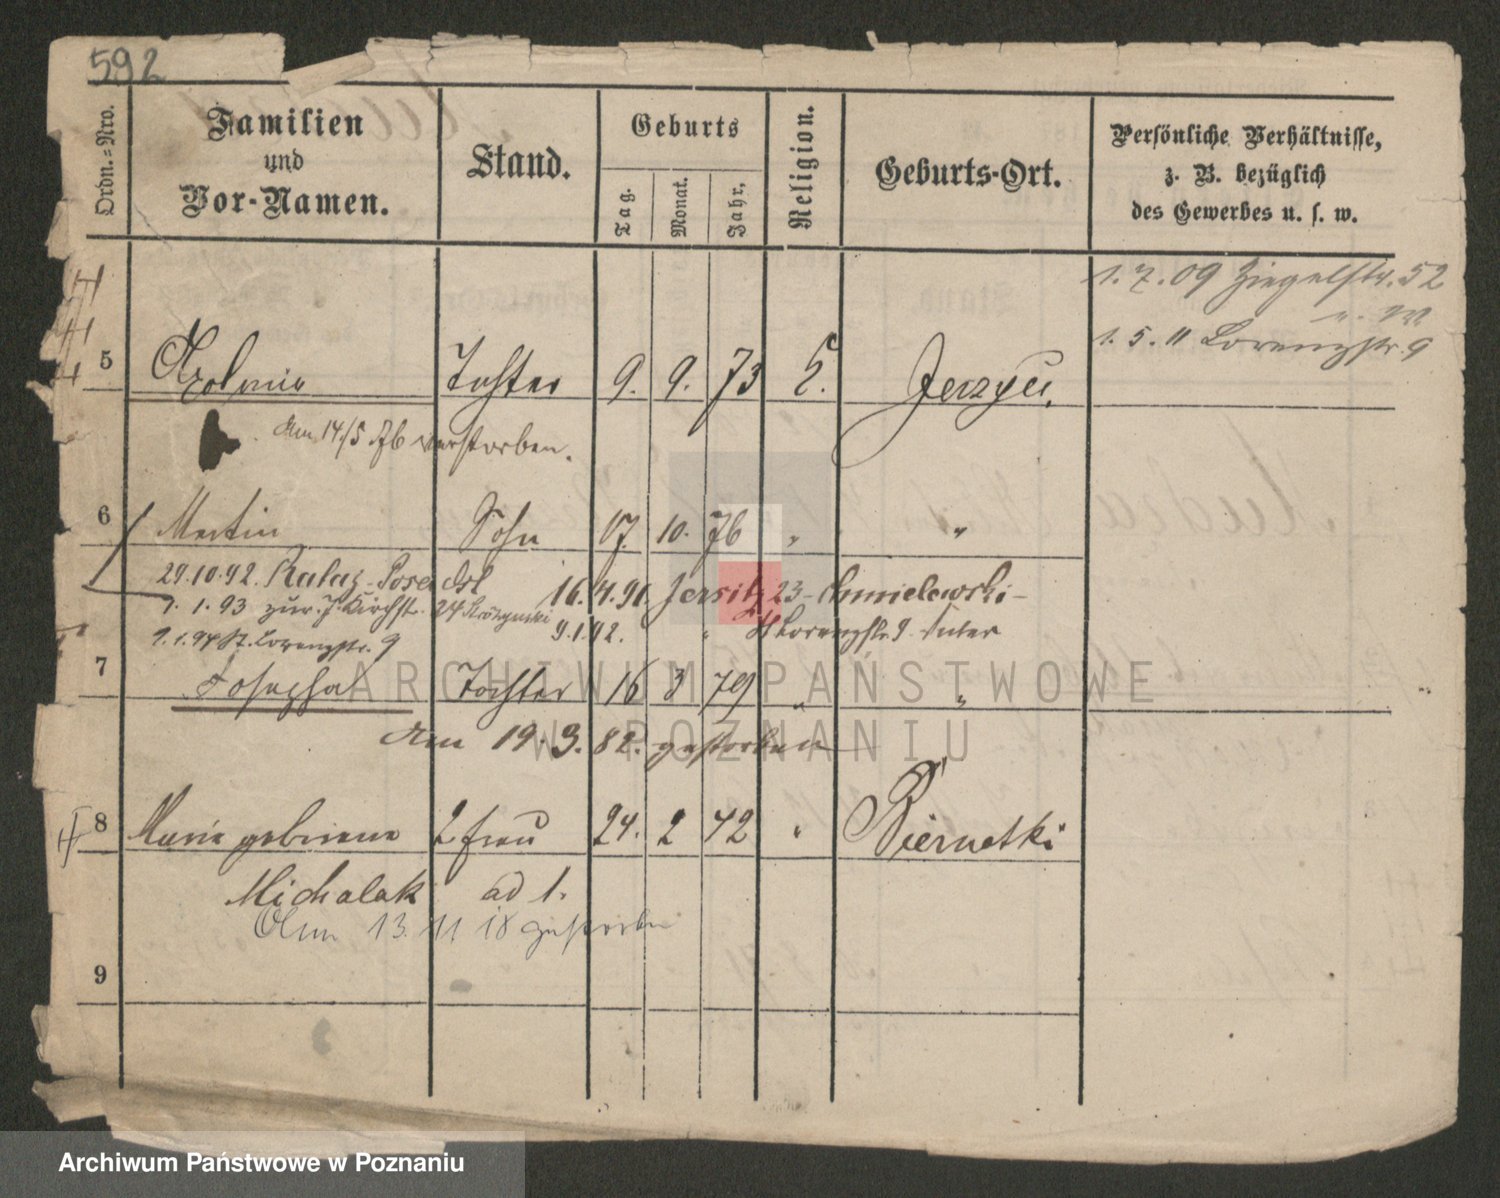 592
Ordn.=Nro.
Familien
und
Vor-Namen.
Stand.
Geburts
Tag.
Monat.
Jahr.
Religion.
Geburts-Ort.
Persönliche Verhältnisse,
z. B. bezüglich
des Gewerbes u. s. w.
1.7.09 Ziegelstr. 52
1.5.11 Lorenzstr. 9
5 Apolonia Tochter 9. 9. 73 Jerzyce.
Am 14/5 76 verstorben.
6 Martin Sohn 17. 10. 76 " "
29.10.92. Rataj-Posen
16.4.91 Jersitz 23 - Chmielewski -
1.1.93 zur. J. Kirchstr. 24
9.1.92. " St Lorenzstr. 9
1.1.94 St. Lorenzstr. 9
7 Josepha Tochter 16 3 79 " "
am 19.3.82. gestorben
8 Marie geborene 2 Frau 24. 2 42 " Biernatki
Michalak ad 1.
Am 13. 11 18 gestorben
9
ARCHIWUM PAŃSTWOWE
W POZNANIU
Archiwum Państwowe w Poznaniu